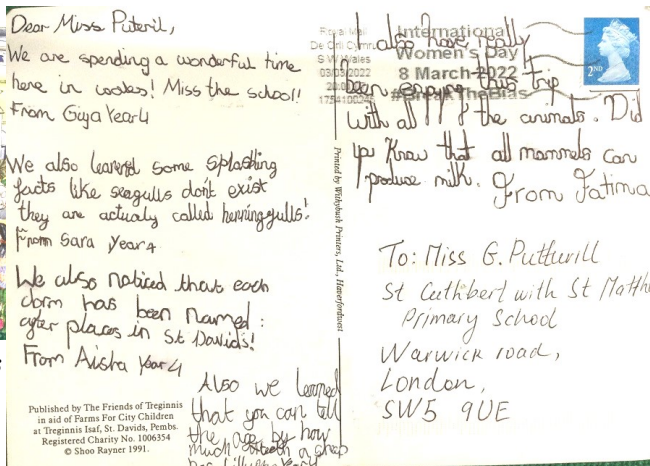 Dear Miss Puteril,
We are spending a wonderful time
here in wales! Miss the school!
From Giya Year 4
We also learend some splashing
facts like seagulls don't exist
they are actualy called herringgulls!
From Sara Year 4
We also noticed that each
dorm has been named
after places in St David's!
From Aisha Year 4
Also we learned
that you can tell
the age by how
much teeth a sheep
has
Published by The Friends of Treginnis
in aid of Farms For City Children
at Treginnis Isaf, St. Davids, Pembs.
Registered Charity No. 1006354
© Shoo Rayner 1991.
Printed by Withybush Printers, Ltd., Haverfordwest
Royal Mail
De Orll Cymru
S W Wales
03/03/2022
International
Women's Day
8 March 2022
#BreakTheBias
2ND
I also have really
been enjoying this trip
with all of the animals. Did
you know that all mammels can
produce milk. From Fatima
To: Miss G. Putterill
St Cuthbert with St Matth
Primary School
Warwick road,
London,
SW5 9UE